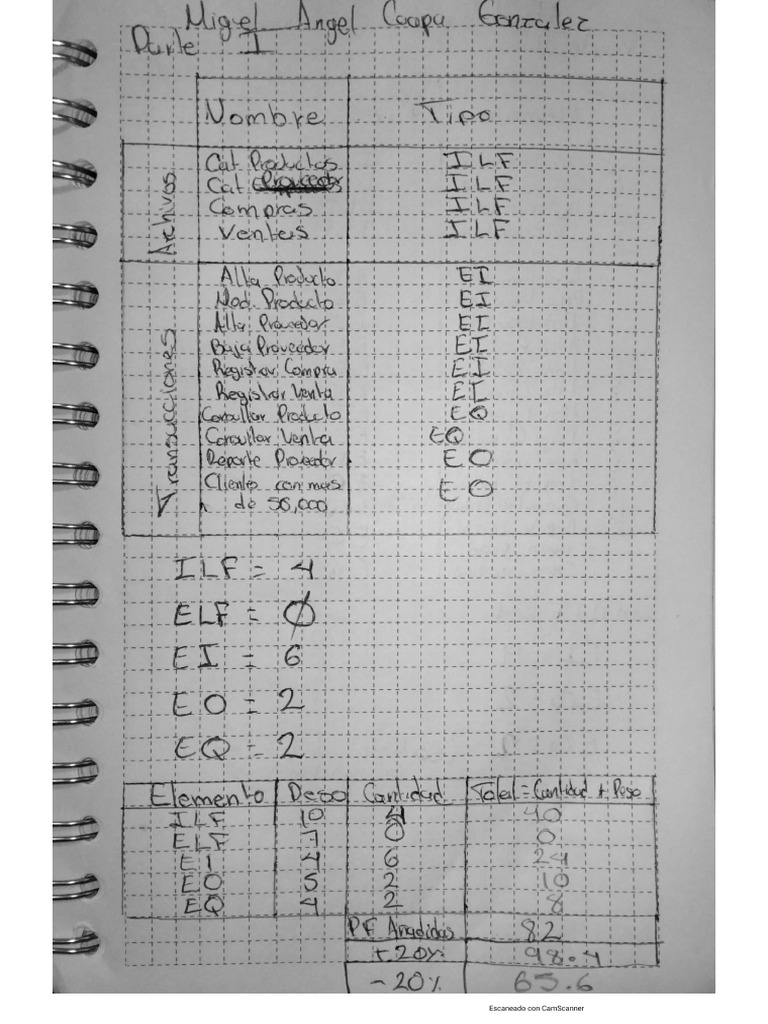 Miguel Angel Coapa Gonzalez
Parte I
Nombre Tipo
Archivos
Cat Productos ILF
Cat Proveedor ILF
Compras ILF
Ventas ILF
Transacciones
Alta Producto EI
Mod. Producto EI
Alta Proveedor EI
Baja Proveedor EI
Registrar Compra EI
Registrar Venta EI
Consultar Producto EQ
Consultar Venta EQ
Reporte Proveedor EO
Cliente con mas EO
de 50,000
ILF = 4
ELF = 0
EI = 6
EO = 2
EQ = 2
Elemento Peso Cantidad Total = Cantidad * Peso
ILF 10 4 40
ELF 7 0 0
EI 4 6 24
EO 5 2 10
EQ 4 2 8
PF Añadidos 82
+20% 98.4
-20% 65.6
Escaneado con CamScanner